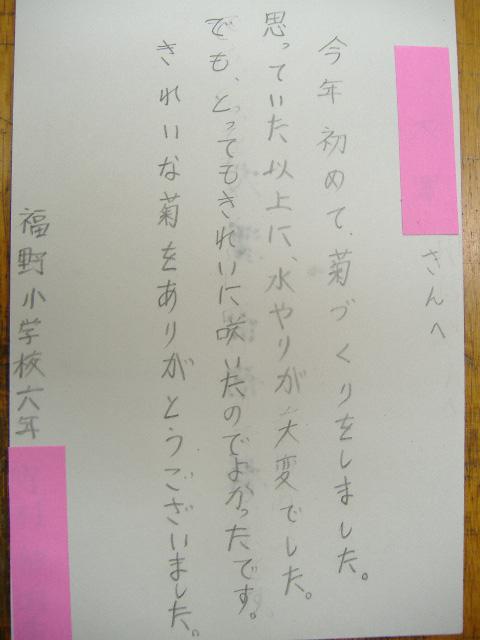 さんへ
今年初めて、菊づくりをしました。
思っていた以上に、水やりが大変でした。
でも、とってもきれいに咲いたのでよかったです。
きれいな菊をありがとうございました。
福野小学校六年